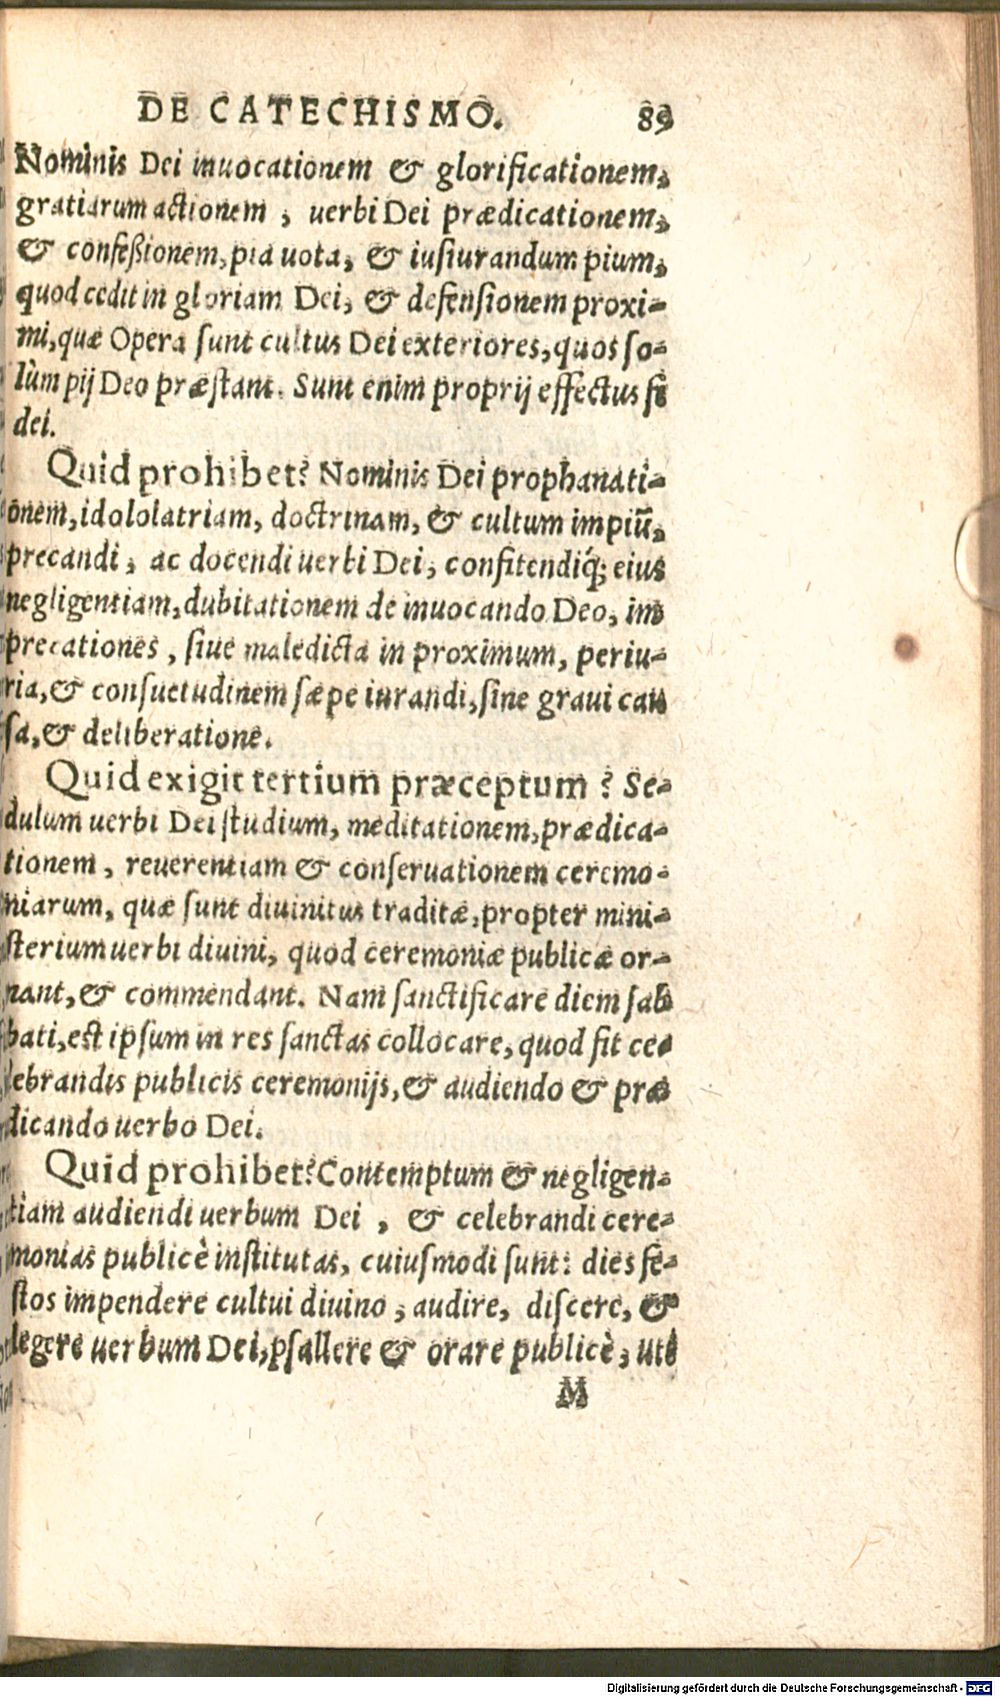 DE CATECHISMO. 89
Nominis Dei inuocationem & glorificationem,
gratiarum actionem, uerbi Dei prædicationem,
& confeßionem, pia uota, & iusiurandum pium,
quod cedit in gloriam Dei, & defensionem proxi-
mi, quæ Opera sunt cultus Dei exteriores, quos so-
lùm pij Deo præstant. Sunt enim proprij effectus fi
dei.
Quid prohibet? Nominis Dei prophanati-
onem, idololatriam, doctrinam, & cultum impiū,
precandi, ac docendi uerbi Dei, confitendiq́; eius
negligentiam, dubitationem de inuocando Deo, im
precationes, siue maledicta in proximum, periu-
ria, & consuetudinem sæpe iurandi, sine graui cau
sa, & deliberatione.
Quid exigit tertium præceptum? Se-
dulum uerbi Dei studium, meditationem, prædica-
tionem, reuerentiam & conseruationem ceremo-
niarum, quæ sunt diuinitus traditæ, propter mini-
sterium uerbi diuini, quod ceremoniæ publicæ or-
nant, & commendant. Nam sanctificare diem sab
bati, est ipsum in res sanctas collocare, quod fit ce-
lebrandis publicis ceremonijs, & audiendo & præ
dicando uerbo Dei.
Quid prohibet? Contemptum & negligen-
tiam audiendi uerbum Dei, & celebrandi cere-
monias publicè institutas, cuiusmodi sunt: dies fe-
stos impendere cultui diuino, audire, discere, &
legere uerbum Dei, psallere & orare publicè, uti
M
Digitalisierung gefördert durch die Deutsche Forschungsgemeinschaft - DFG